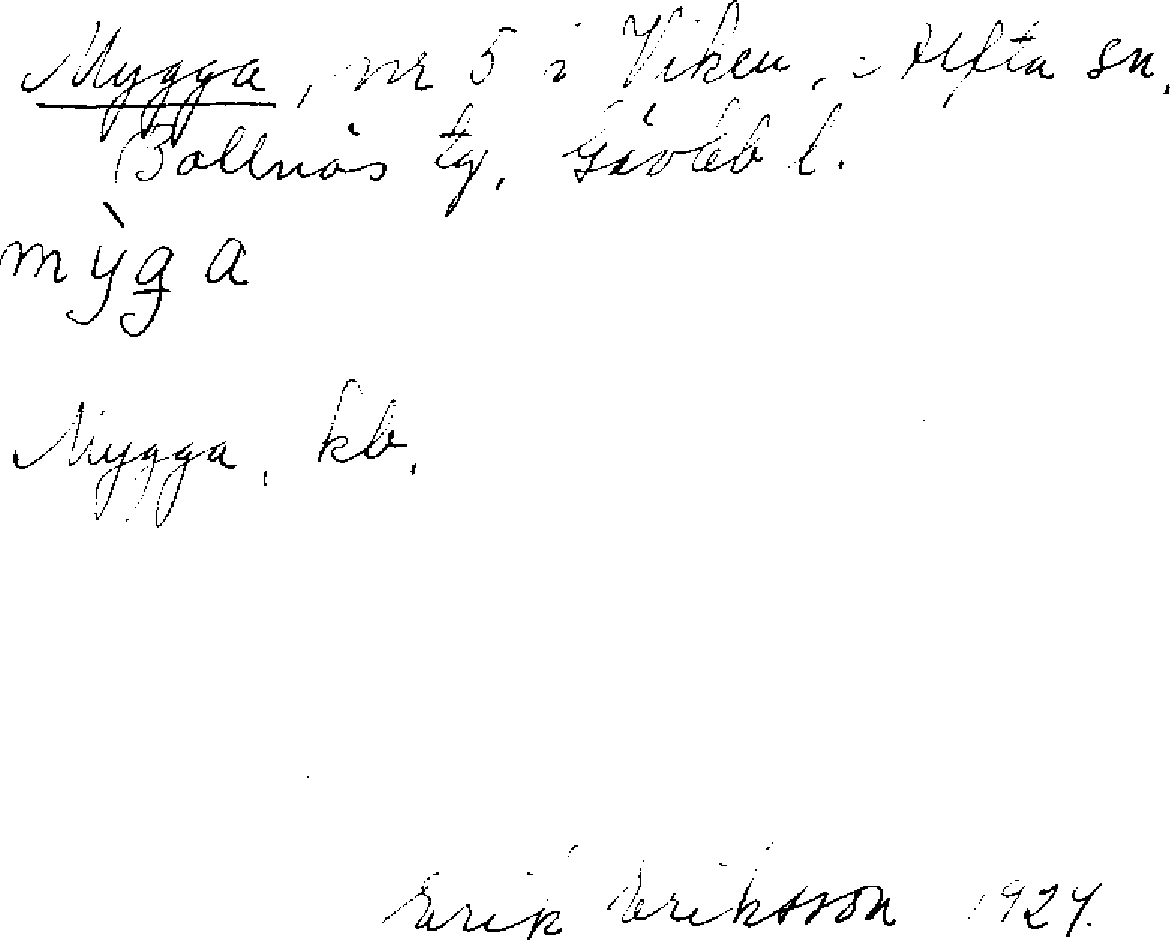 Mygga, nr 5 i Viken, i Alfta sn,
Bollnäs tg, Gävleb l.
mỳg̱a
Mygga, kb.
Erik Eriksson 1924.